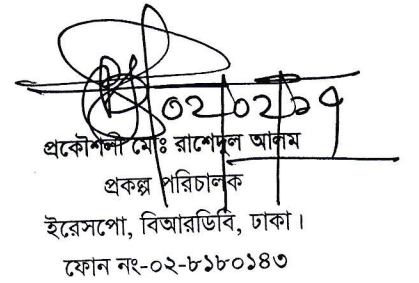 ০২/০২/১৭
প্রকৌশলী মোঃ রাশেদুল আলম
প্রকল্প পরিচালক
ইরেসপো, বিআরডিবি, ঢাকা।
ফোন নং-০২-৮১৮০১৪৩